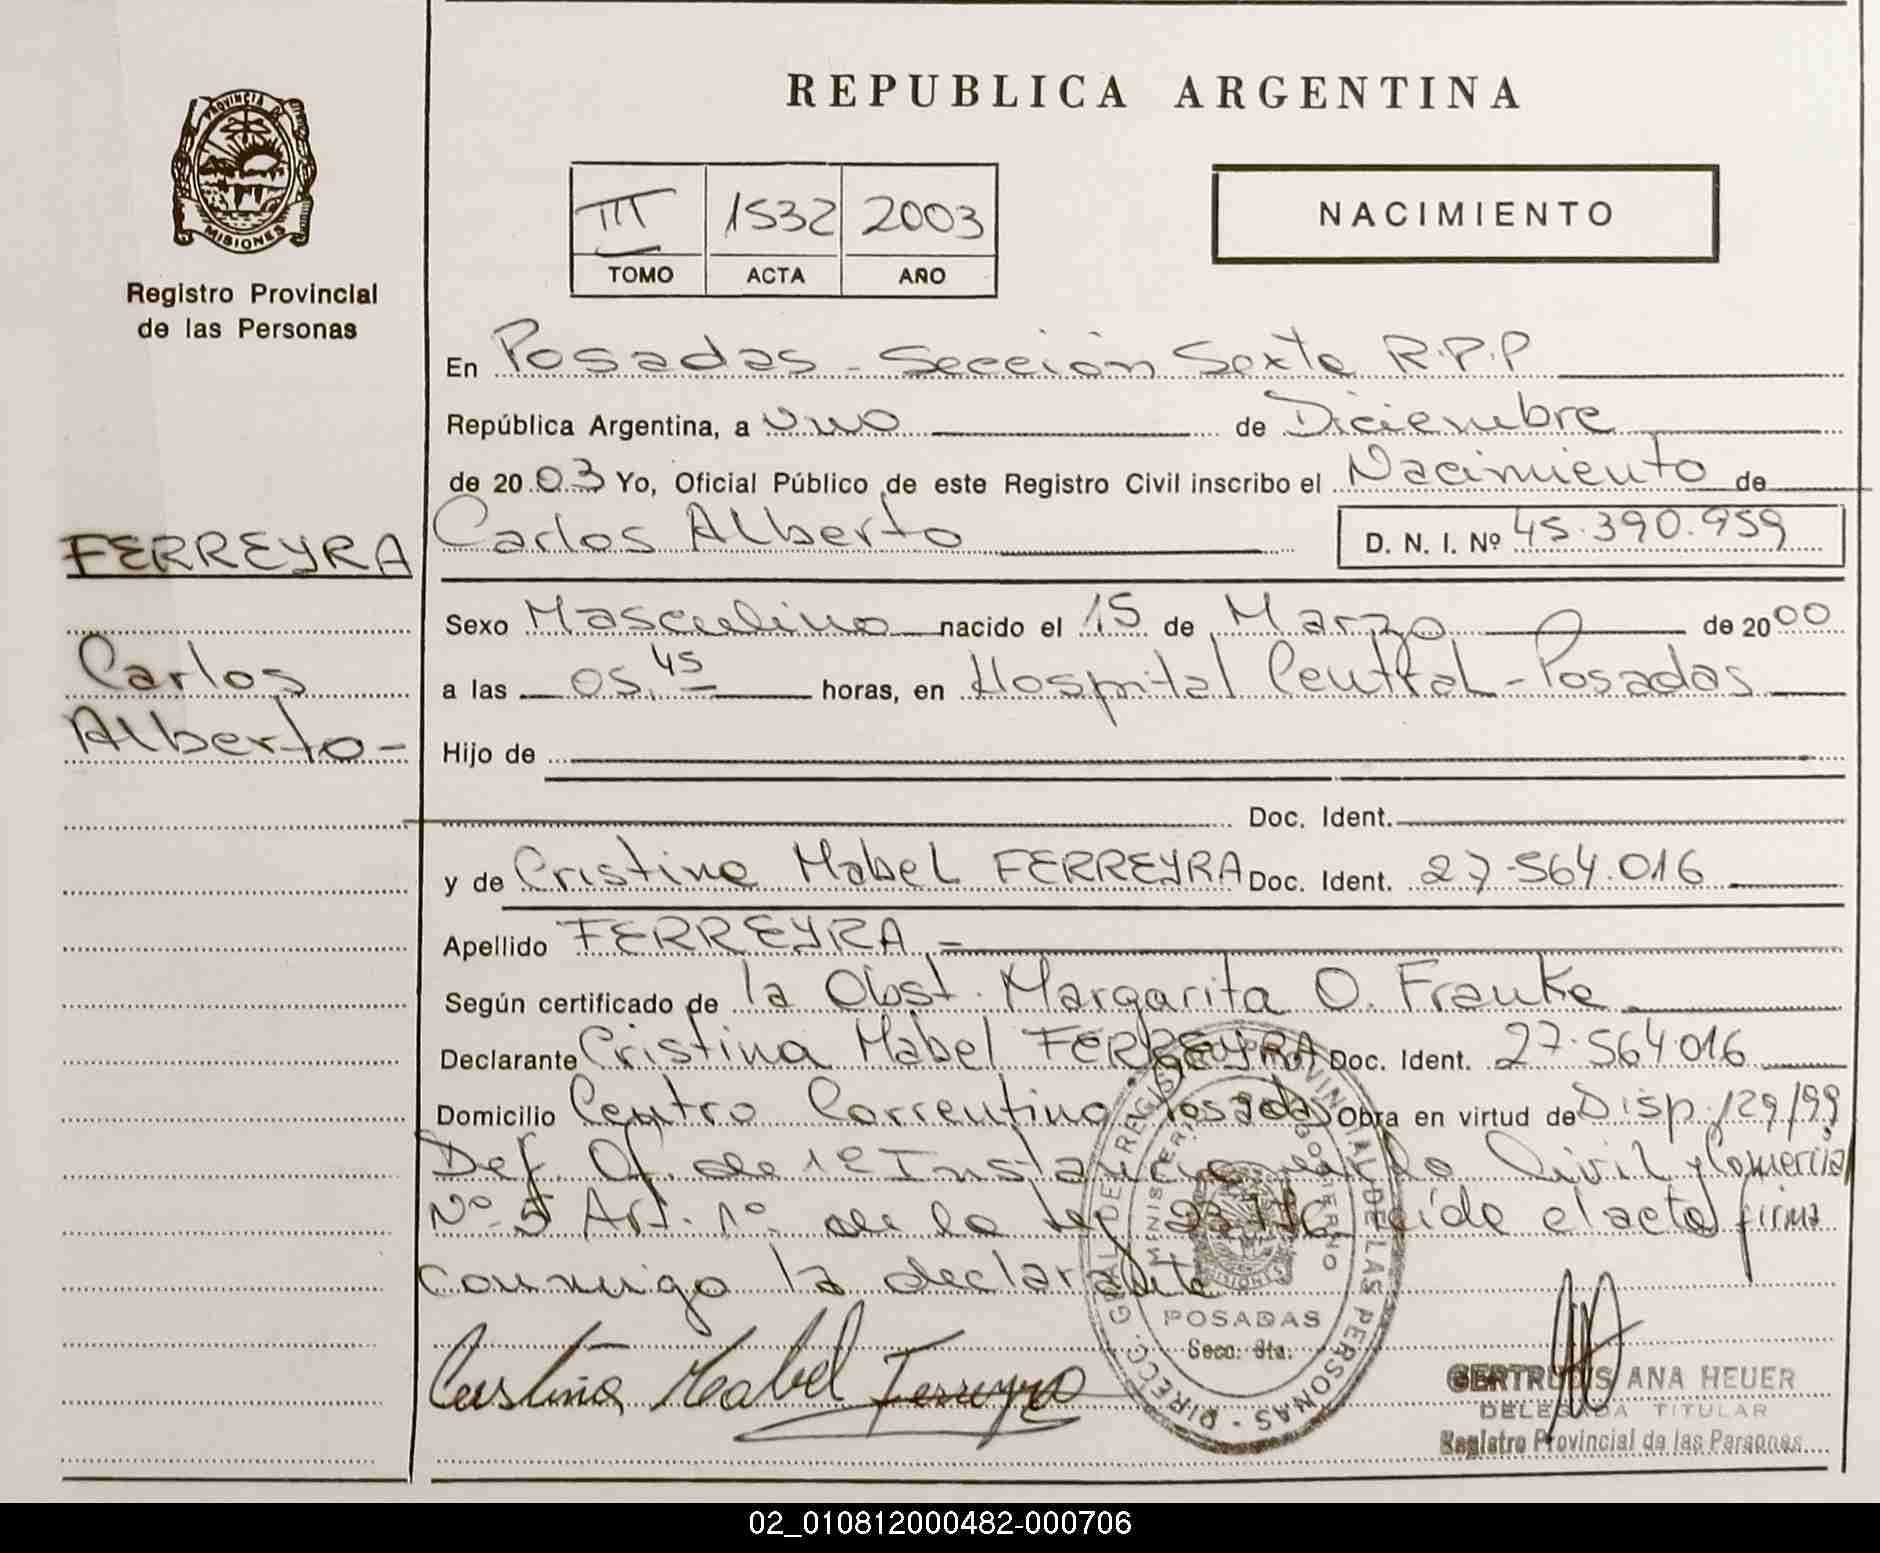 REPUBLICA ARGENTINA
PROVINCIA DE
MISIONES
Registro Provincial
de las Personas
III 1532 2003
TOMO ACTA AÑO
NACIMIENTO
En Posadas - Sección Sexta R.P.P
República Argentina, a uno de Diciembre
de 2003 Yo, Oficial Público de este Registro Civil inscribo el Nacimiento de
FERREYRA
Carlos Alberto D. N. I. Nº 45.390.959
Sexo Masculino nacido el 15 de Marzo de 2000
Carlos
a las 05.45 horas, en Hospital Central - Posadas
Alberto-
Hijo de
Doc. Ident.
y de Cristina Mabel FERREYRA Doc. Ident. 27.564.016
Apellido FERREYRA
Según certificado de la Obst. Margarita O. Franke
Declarante Cristina Mabel FERREYRA Doc. Ident. 27.564.016
Domicilio Centro Correntino Posadas Obra en virtud de Disp. 129/99
Def. Of. de 1º Instancia en lo Civil y Comercial
Nº 5 Art. 1º de la ley leída el acta firma
conmigo la declarante
Cristina Mabel Ferreyra
DIRECC. GRAL. DE REGISTRO PROVINCIAL DE LAS PERSONAS
MINISTERIO GOBIERNO
MISIONES
POSADAS
Secc. 6ta.
GERTRUDIS ANA HEUER
DELEGADA TITULAR
Registro Provincial de las Personas
02_010812000482-000706